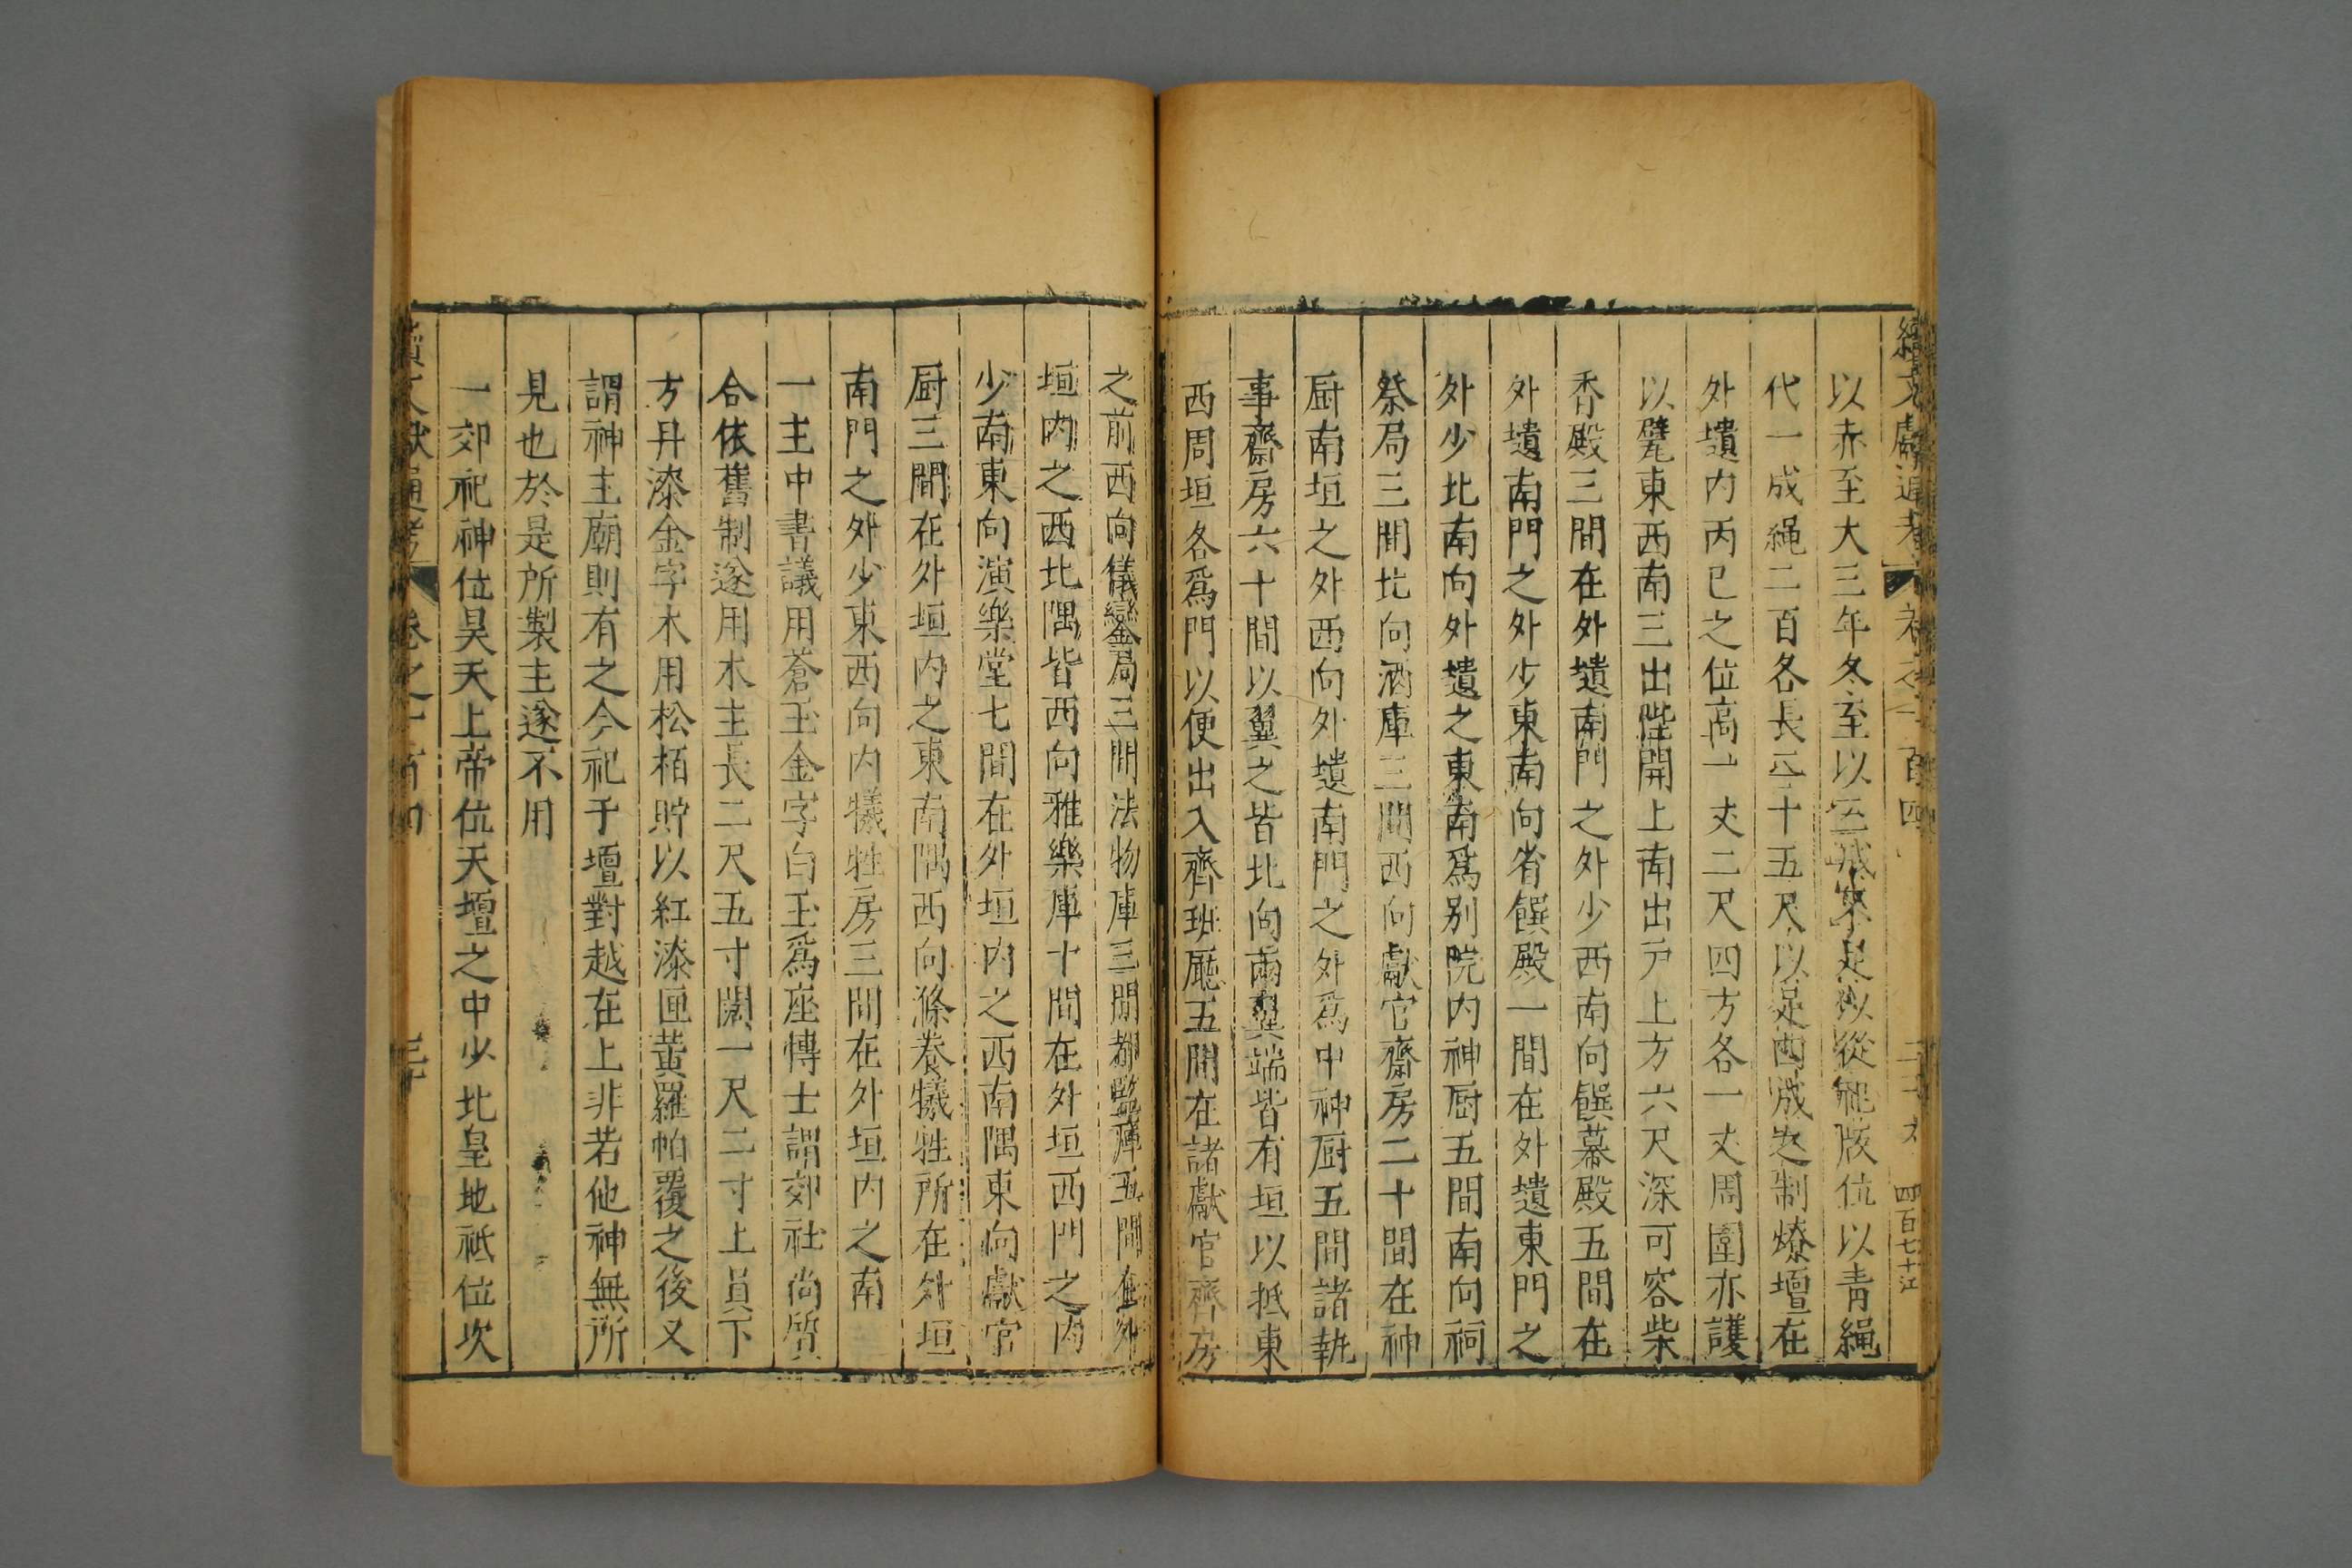 續文獻通考 卷之一百四
以赤至大三年冬至以三成不足以從祀版位以青繩
代一成繩二百各長二十五尺以足四成之制燎壇在
外壝内丙巳之位高一丈二尺四方各一丈周圍亦護
以甓東西南三出陛開上南出戸上方六尺深可容柴
香殿三間在外壝南門之外少西南向饌幕殿五間在
外壝南門之外少東南向省饌殿一間在外壝東門之
外少北南向外壝之東南爲别院内神厨五間南向祠
祭局三間北向酒庫三間西向獻官齋房二十間在神
厨南垣之外西向外壝南門之外爲中神厨五間諸執
事齋房六十間以翼之皆北向兩翼端皆有垣以抵東
西周垣各爲門以便出入齊班廳五間在諸獻官齊房
之前西向儀鑾局三間法物庫三間都監庫五間在外
垣内之西北隅皆西向雅樂庫十間在外垣西門之内
少南東向演樂堂七間在外垣内之西南隅東向獻官
厨三間在外垣内之東南隅西向滌養犧牲所在外垣
南門之外少東西向内犧牲房三間在外垣内之南
一主中書議用蒼玉金字白玉爲座慱士謂郊社尚質
合依舊制遂用木主長二尺五寸闊一尺二寸上員下
方丹漆金字木用松栢貯以紅漆匣黃羅帕覆之後又
謂神主廟則有之今祀于壇對越在上非若他神無所
見也於是所製主遂不用
一郊祀神位昊天上帝位天壇之中少北皇地祗位次
續文獻通考 卷之一百四 三十